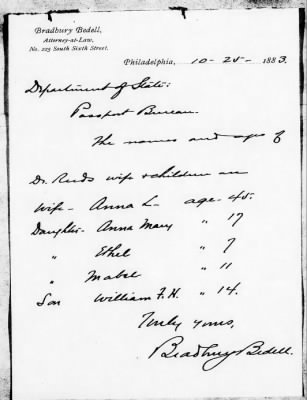 Bradbury Bedell,
Attorney-at-Law,
No. 225 South Sixth Street.
Philadelphia, 10-25-1883.
Department of State:
Passport Bureau.
The names and ages of
Dr. Reed's wife & children are
Wife - Anna L - age - 45.
Daughter - Anna Mary " 17
" Ethel " 7
" Mabel " 11
Son William F. H. " 14.
Truly yours,
Bradbury Bedell.